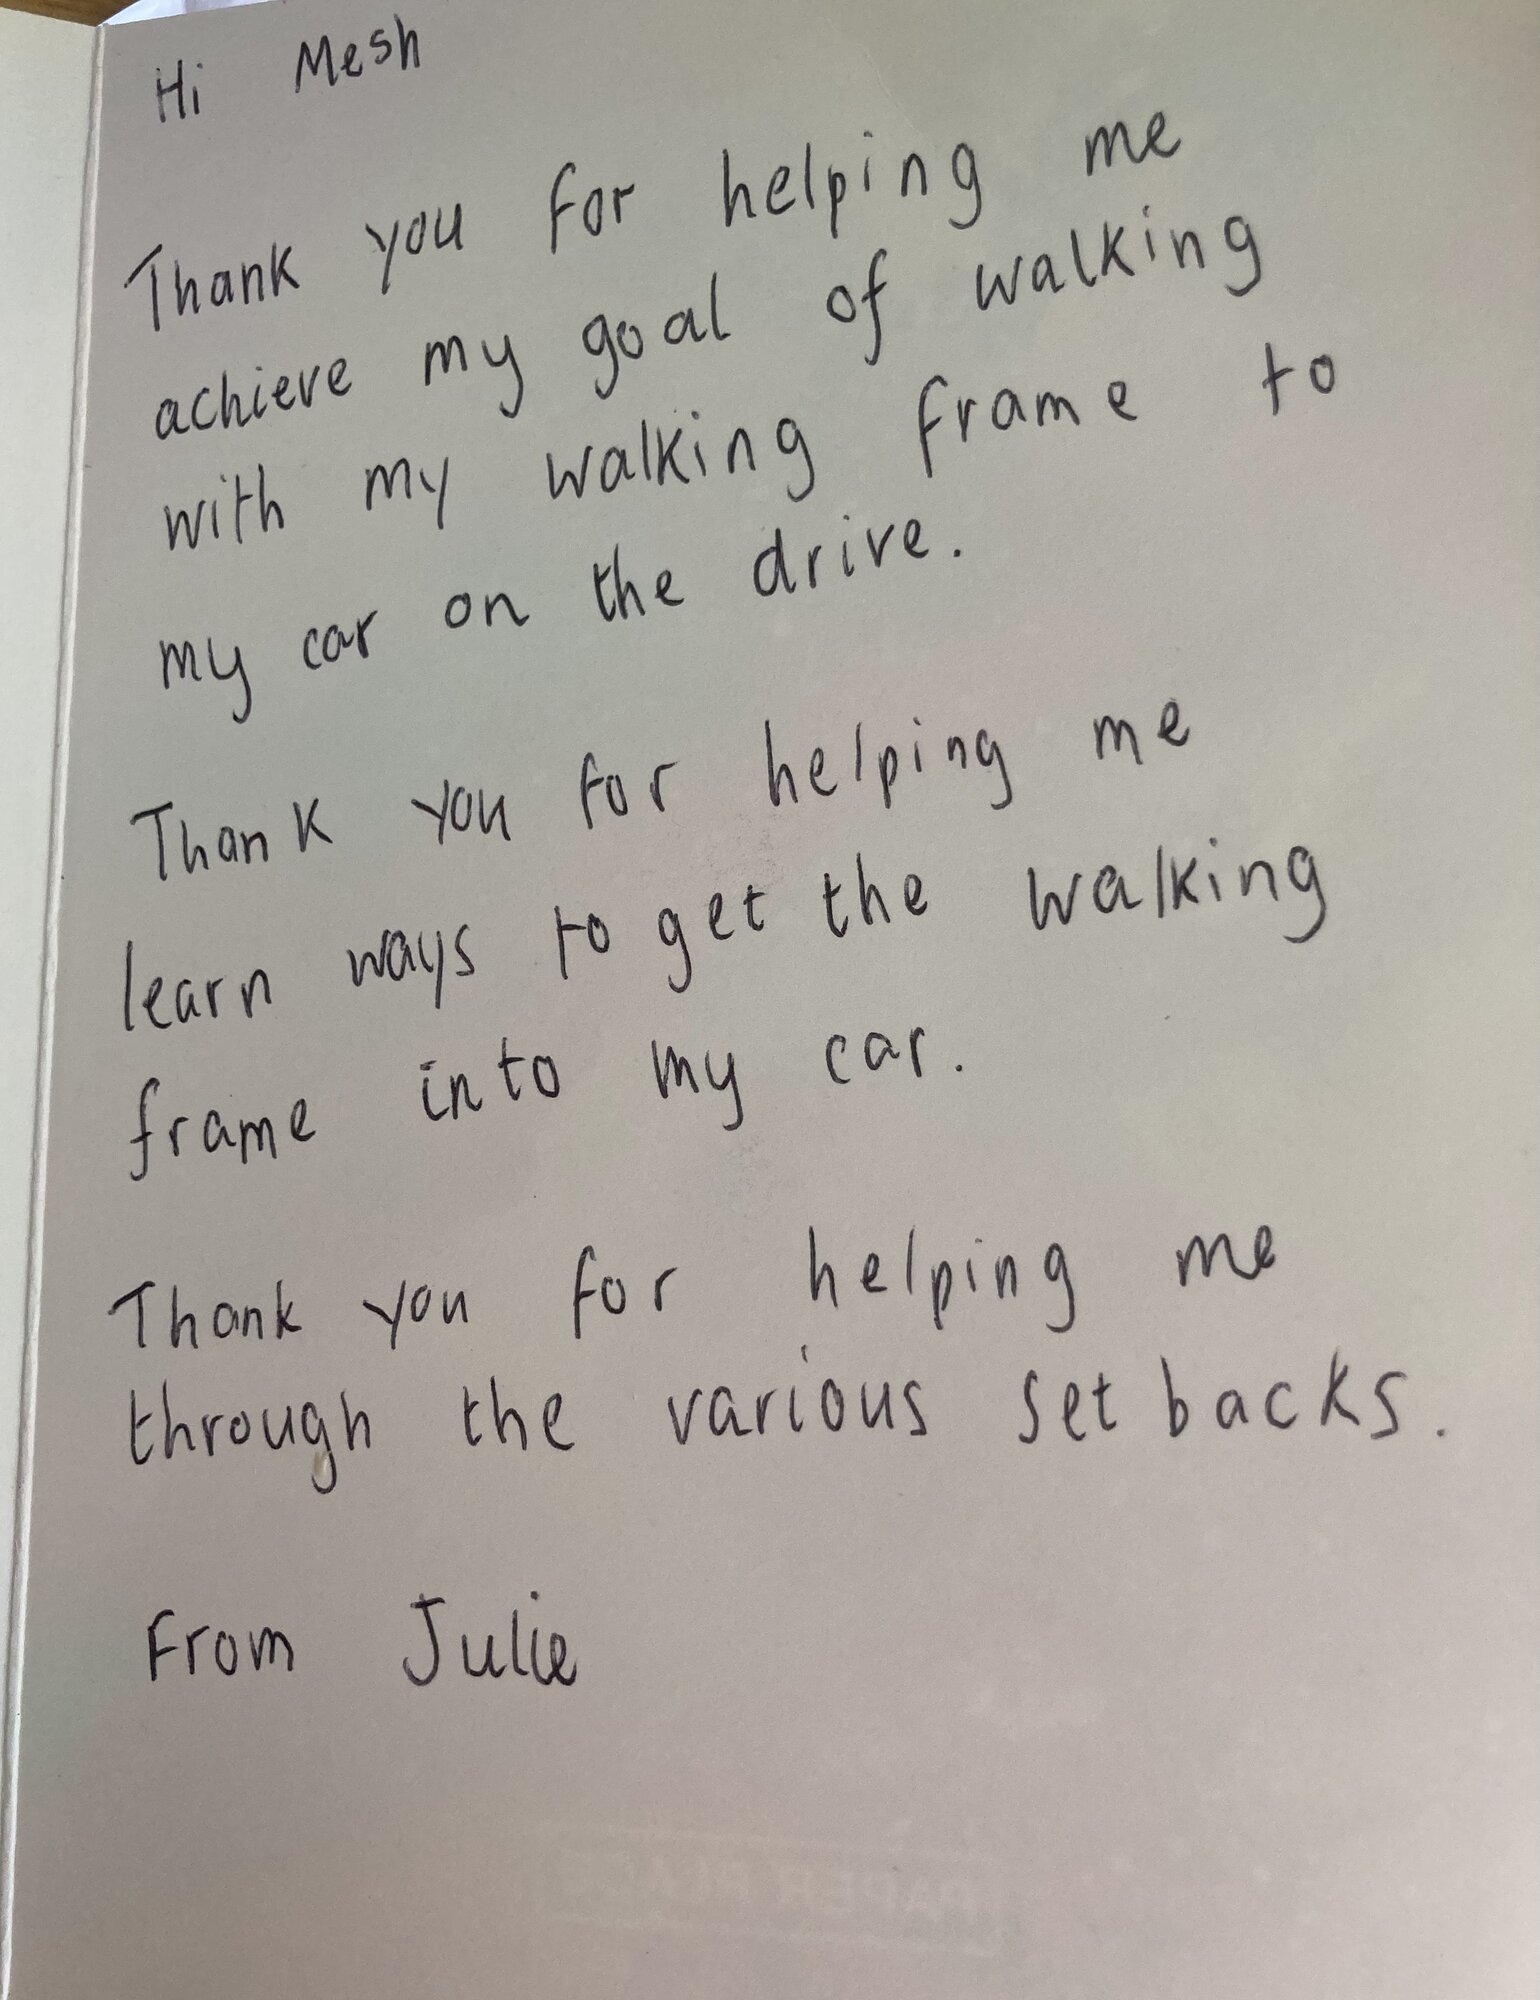 Hi Mesh
Thank you for helping me
achieve my goal of walking
with my walking frame to
my car on the drive.
Thank you for helping me
learn ways to get the walking
frame into my car.
Thank you for helping me
through the various set backs.
From Julie